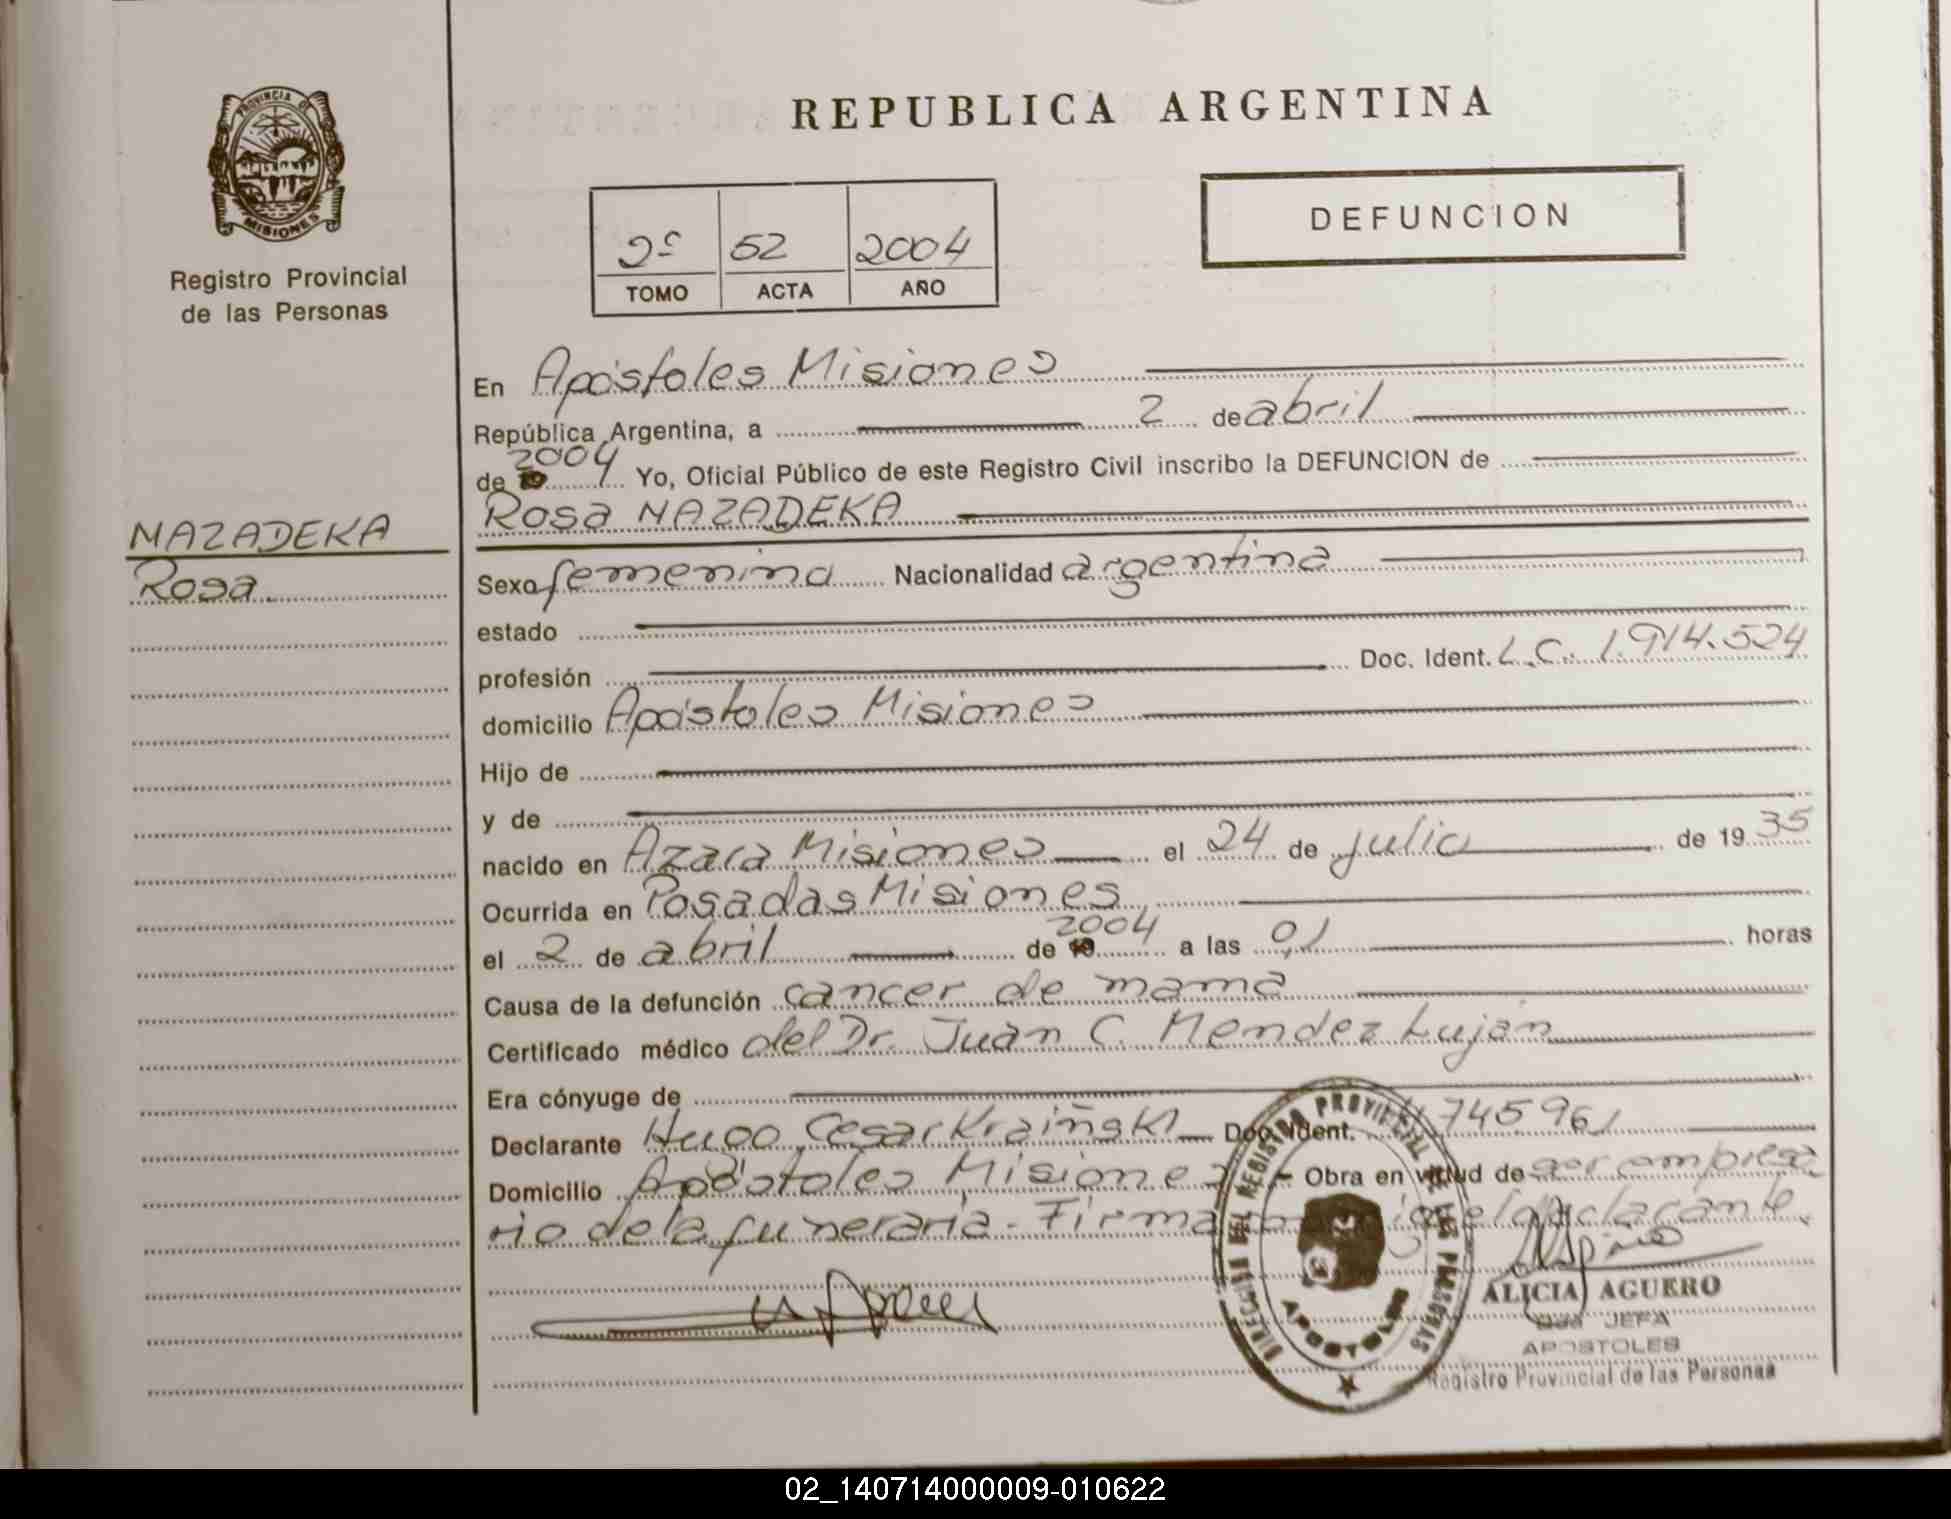 REPUBLICA ARGENTINA
PROVINCIA DE
MISIONES
Registro Provincial
de las Personas
2º 52 2004
TOMO ACTA AÑO
DEFUNCION
En Apóstoles Misiones
República Argentina, a 2 de abril
de 19 2004 Yo, Oficial Público de este Registro Civil inscribo la DEFUNCION de
NAZADEKA
Rosa.
Rosa NAZADEKA
Sexo femenina Nacionalidad argentina
estado
profesión Doc. Ident. L.C. 1.914.524
domicilio Apóstoles Misiones
Hijo de
y de
nacido en Azara Misiones el 24 de julio de 19 35
Ocurrida en Posadas Misiones
el 2 de abril de 19 2004 a las 01 horas
Causa de la defunción cancer de mama
Certificado médico del Dr. Juan C. Mendez Lujan
Era cónyuge de
Declarante Hugo Cesar Kraiñski Doc. Ident. 745961
Domicilio Apóstoles Misiones - Obra en virtud de ser empresa
rio de la funeraria - Firma el declarante.
DIRECCION DEL REGISTRO PROVINCIAL DE LAS PERSONAS
APOSTOLES
ALICIA AGUERO
JEFA
APOSTOLES
Registro Provincial de las Personas
02_140714000009-010622